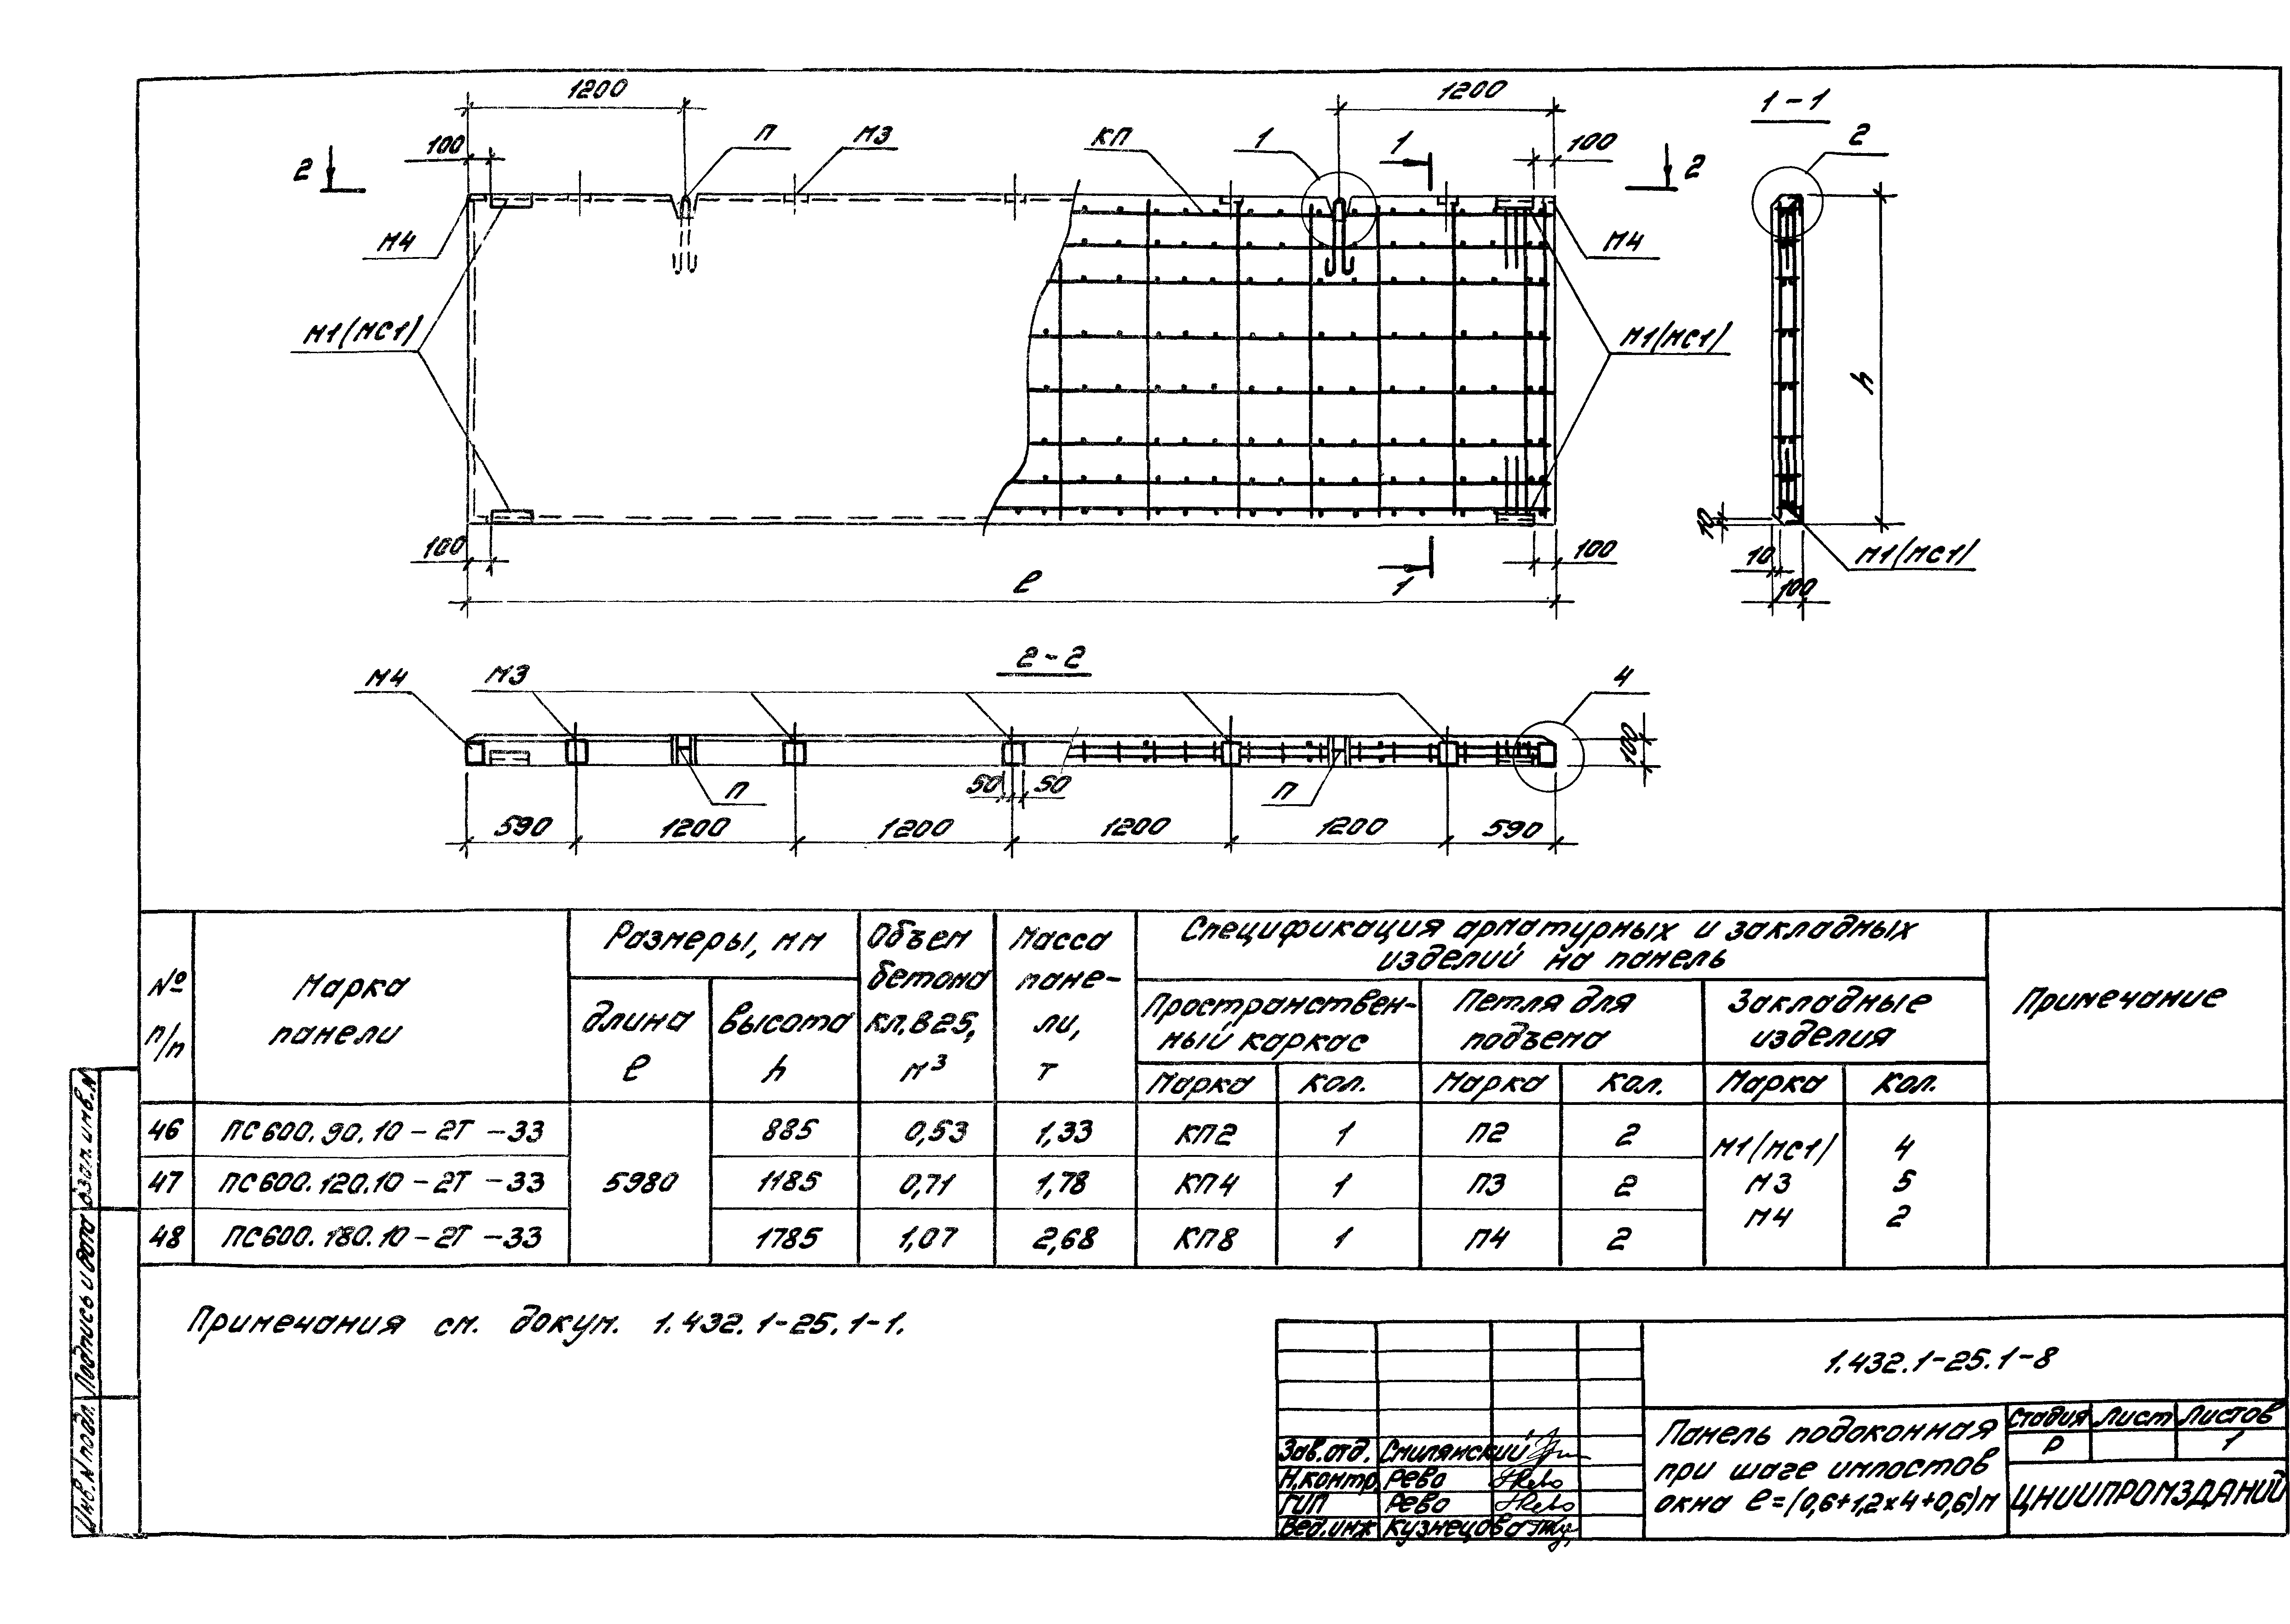 1200
1200
1-1
100
П
М3
КП
1
1
100
2
2
2
М4
М4
М1(МС1)
М1(МС1)
h
100
100
10
10
100
М1(МС1)
1
ℓ
2-2
М4
М3
4
100
50
50
П
П
590
1200
1200
1200
1200
590
№ п/п
Марка панели
Размеры, мм
длина ℓ
высота h
Объем бетона кл. В25, м³
Масса пане-ли, т
Спецификация арматурных и закладных изделий на панель
Пространствен-ный каркас
Петля для подъема
Закладные изделия
Примечание
Марка
кол.
Марка
кол.
Марка
кол.
46 ПС600.90.10-2Т-33 885 0,53 1,33 КП2 1 П2 2
47 ПС600.120.10-2Т-33 5980 1185 0,71 1,78 КП4 1 П3 2
48 ПС600.180.10-2Т-33 1785 1,07 2,68 КП8 1 П4 2
М1(МС1) 4
М3 5
М4 2
Примечания см. докум. 1.432.1-25.1-1.
1.432.1-25.1-8
Панель подоконная
при шаге импостов
окна ℓ=(0,6+1,2х4+0,6)м
Стадия Лист Листов
Р 1
ЦНИИПРОМЗДАНИЙ
Зав.отд. Смилянский
Н.контр. Рево
ГИП Рево
Вед.инж Кузнецова
Инв.N подл.
Подпись и дата
Взам.инв.N